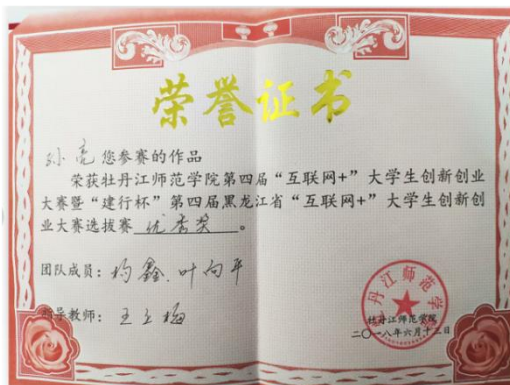 荣誉证书
孙亮您参赛的作品
荣获牡丹江师范学院第四届“互联网+”大学生创新创业
大赛暨“建行杯”第四届黑龙江省“互联网+”大学生创新创
业大赛选拔赛 优秀奖 。
团队成员：杨鑫、叶向平
指导教师：王立梅
牡丹江师范学院
二〇一八年六月十三日